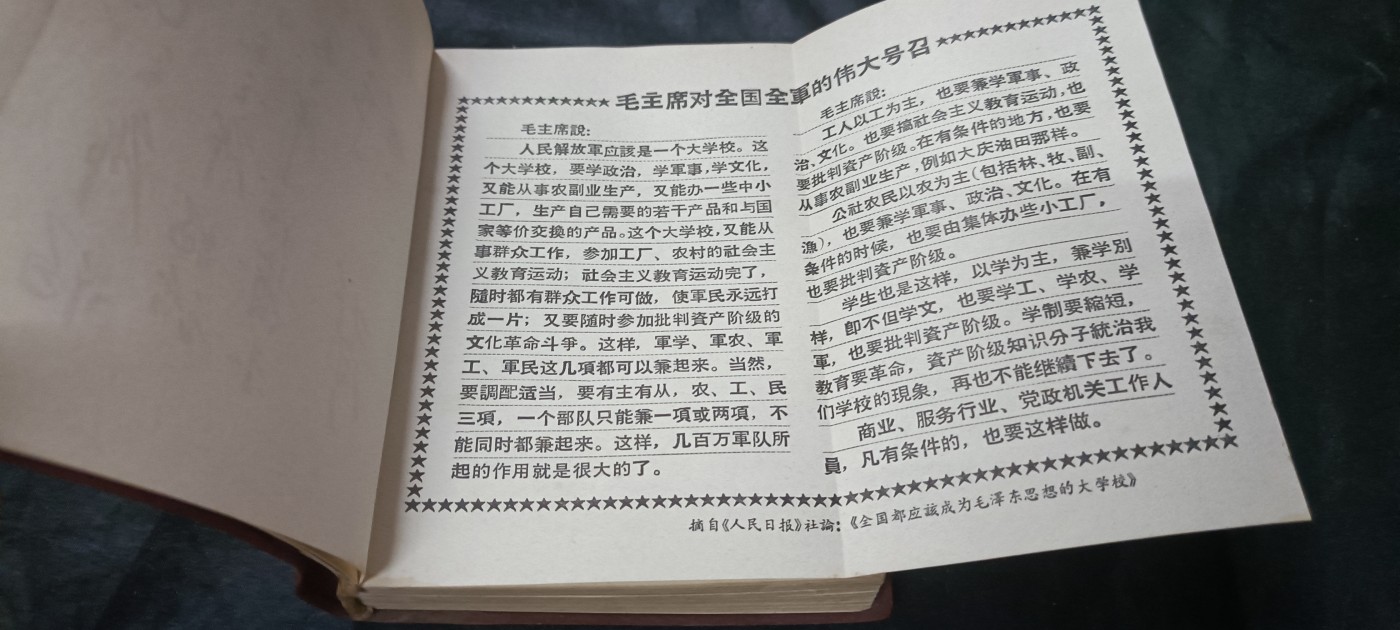 毛主席对全国全軍的伟大号召
毛主席說：
人民解放軍应該是一个大学校。这
个大学校，要学政治，学軍事，学文化，
又能从事农副业生产，又能办一些中小
工厂，生产自己需要的若干产品和与国
家等价交換的产品。这个大学校，又能从
事群众工作，参加工厂、农村的社会主
义教育运动；社会主义教育运动完了，
隨时都有群众工作可做，使軍民永远打
成一片；又要隨时参加批判資产阶级的
文化革命斗爭。这样，軍学、軍农、軍
工、軍民这几項都可以兼起来。当然，
要調配适当，要有主有从，农、工、民
三項，一个部队只能兼一項或两項，不
能同时都兼起来。这样，几百万軍队所
起的作用就是很大的了。
毛主席說：
工人以工为主，也要兼学軍事、政
治、文化。也要搞社会主义教育运动，也
要批判資产阶级。在有条件的地方，也要
从事农副业生产，例如大庆油田那样。
公社农民以农为主（包括林、牧、副、
漁），也要兼学軍事、政治、文化。在有
条件的时候，也要由集体办些小工厂，
也要批判資产阶级。
学生也是这样，以学为主，兼学别
样，卽不但学文，也要学工、学农、学
軍，也要批判資产阶级。学制要縮短，
教育要革命，資产阶级知识分子統治我
们学校的現象，再也不能继續下去了。
商业、服务行业、党政机关工作人
員，凡有条件的，也要这样做。
摘自《人民日报》社論：《全国都应該成为毛泽东思想的大学校》